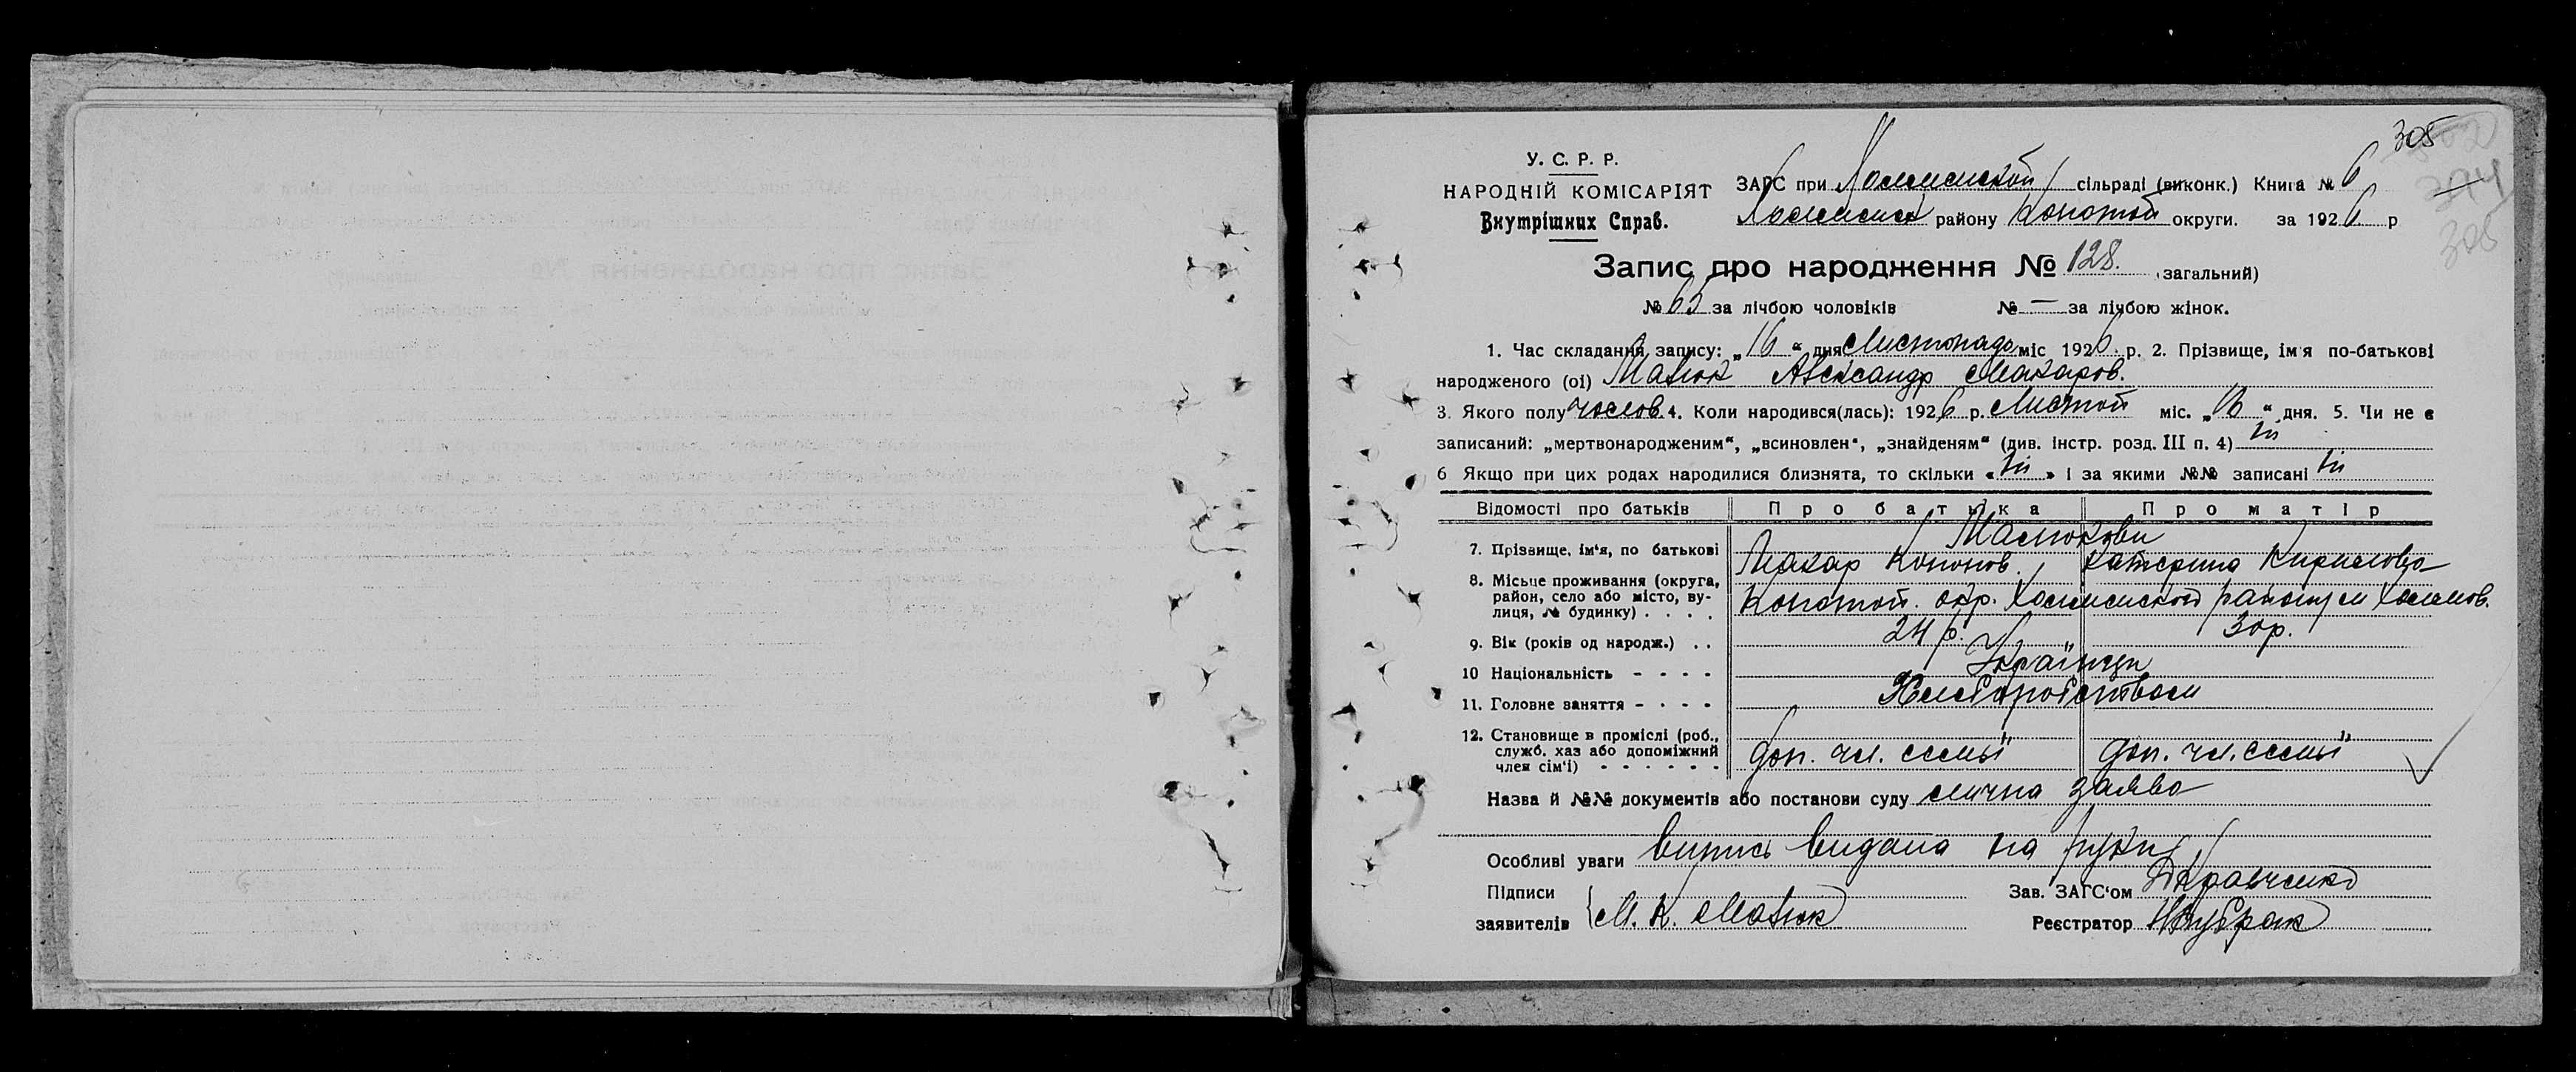 305
У. С. Р. Р.
НАРОДНІЙ КОМІСАРІЯТ
Внутрішних Справ.
ЗАГС при сільраді (виконк.) Книга № 6
району Конотоп округи. за 1926 р
Запис про народження № 128. (загальний)
№ 65 за лічбою чоловіків № — за лічбою жінок.
1. Час складання запису: „16“ дня Листопадо міс 1926 р. 2. Прізвище, імя по-батькові
народженого (ої) Малюк Александр Макаров.
3. Якого полу чолов. 4. Коли народився(лась): 1926 р. Листоп міс. „16“ дня. 5. Чи не є
записаний: „мертвонародженим“, „всиновлен“, „знайденям“ (див. інстр. розд. III п. 4) ні
6 Якщо при цих родах народилися близнята, то скільки «ні» і за якими №№ записані ні
Відомості про батьків Про батька Про матір
Малюкови
7. Прізвище, ім'я, по батькові Макар Кононов. Катерина Кирилова
8. Місьце проживання (округа, район, село або місто, вулиця, № будинку) Конотоп. окр.
9. Вік (років од народж.) 24 р. 30р.
10 Національність Українци
11. Головне заняття Хлібопобством
12. Становище в промислі (роб., служб. хаз або допоміжний член сім'ї) доп. чл. семьї доп. чл. семьї
Назва й №№ документів або постанови суду слична заява
Особливі уваги випись видана на руки
Підписи
заявителів М. К. Малюк
Зав. ЗАГС'ом Кравченко
Реєстратор